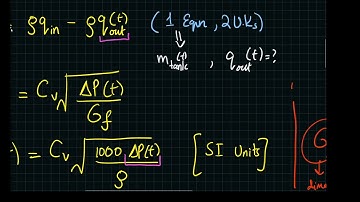 = ρq_in - ρq_out^(t) (1 Eqn, 2 U.Ks)
m_tank^(t) , q_out^(t) = ?
= C_v √(ΔP(t) / G_f)
) = C_v √(1000 ΔP(t) / ρ) [SI Units]
G
dime